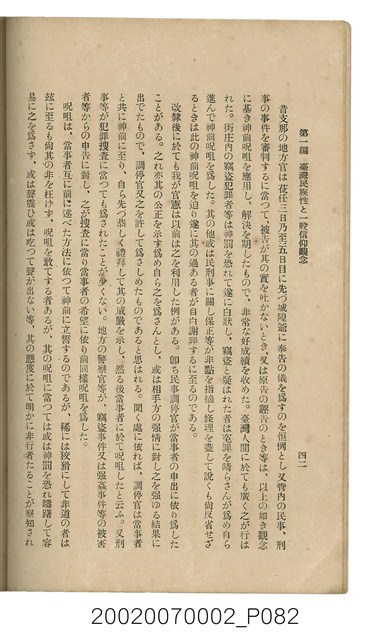 第一編　臺灣民族性と一般信仰觀念
四二
昔支那の地方官は莅任三日乃至五日目に先づ城隍爺に奉告の儀を爲すのを恒例とし又管内の民事、刑
事の事件を審判するに當つて、被告が其の實を吐かないとき、又は原告の誣告のとき等は、以上の如き觀念
に基き神前呪咀を應用し、解決を期したもので、非常な好成績を收めた。臺灣人間に於ても廣く之が行は
れた。街庄內の竊盜犯罪者等は神罰を恐れて遂に白狀し、竊盜と疑はれた者は冤罪を晴らさんが爲め自ら
進んで神前呪咀を爲した。其の他或は民刑事に關し保正等が非點を指摘し條理を盡して說くも尙反省せざ
るときは此の神前呪咀を迫り遂に其の過ある者が自白謝罪するに至るのである。
改隷後に於ても我が官憲は以前は之を利用した例がある。卽ち民事調停官が當事者の申出に依り爲した
ことがある。之れ亦其の公正を示す爲め自ら之を爲さんとし、或は相手方の强情に對し之を强ゆる結果に
出でたもので、調停官又之を許して爲さしめたものであると思はれる。聞く處に依れば、調停官は當事者
と共に神前に至り、自ら先づ恭しく禮拜して其の威嚴を示し、然る後當事者に於て呪咀したと云ふ。又刑
事等が犯罪搜査に當つても爲されたことが少くない。地方の警察官等が、竊盜事件又は强姦事件等の被害
者等からの申告に對し、之が搜査に當り當事者の希望に依り前同樣呪咀を爲した。
呪咀は、當事者互に前に述べた方法に依つて神前に立誓するのであるが、稀には狡猾にして非道の者は
玆に至るも尙其の非を枉けず、呪咀を敢てする者あるが、其の呪咀に當つては或は神罰を恐れ躊躇して容
易に之を爲さず、或は聲震ひ或は吃つて聲が出ない等、其の態度に於て明かに非行者たることが察知され
20020070002_P082